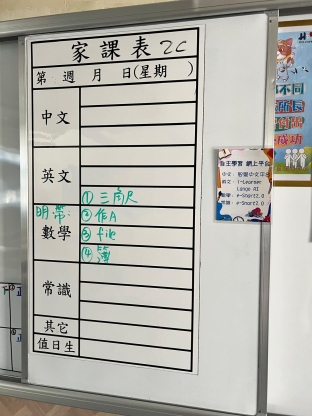 家課表 2C
第 週 月 日(星期 )
中文
英文
① 三角尺
明帶:
② 作A
數學
③ file
④ 簿
常識
其它
值日生
自主學習 網上平台
英文: i-Learner
數學: e-Smart2.0
常識: e-Smart2.0
不同
所長
成功